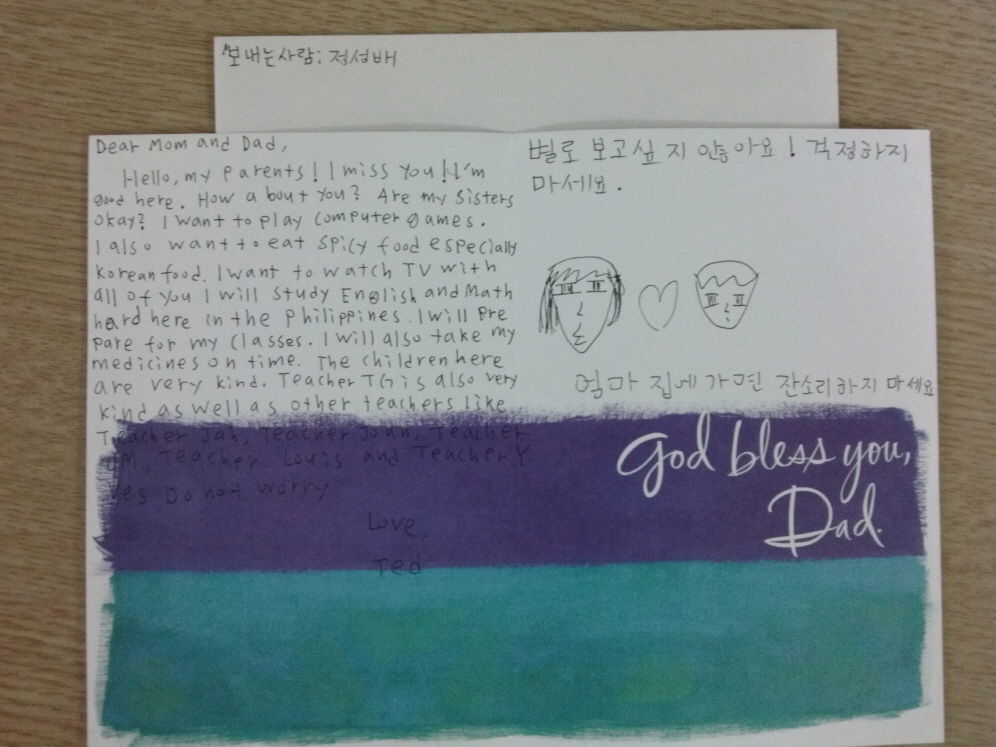 보내는사람: 정성배
Dear Mom and Dad,
Hello, my parents! I miss you! I'm
good here. How about you? Are my sisters
okay? I want to play computer games.
I also want to eat spicy food especially
Korean food. I want to watch TV with
all of you I will study English and Math
hard here in the Philippines. I will pre
pare for my classes. I will also take my
medicines on time. The children here
are very kind. Teacher TG is also very
kind as well as other teachers like
Teacher Jah, Teacher John, Teacher
JM, Teacher Louis and Teacher Y
ves Do not worry
Love,
Ted
별로 보고싶지 안놓아요! 걱정하지
마세요.
엄마 집에 가면 잔소리하지 마세요
God bless you,
Dad.